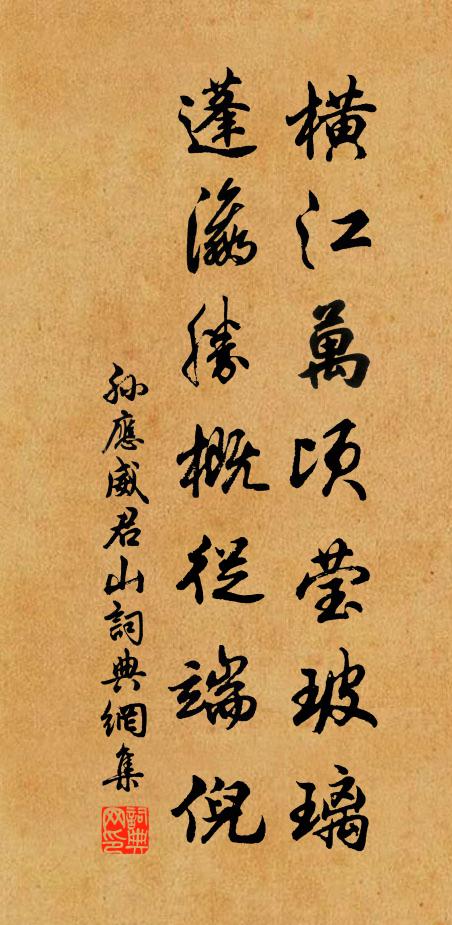 橫江萬頃莹玻璃
蓬瀛勝概從端倪
孫應威君山詞典網集
詞典网印